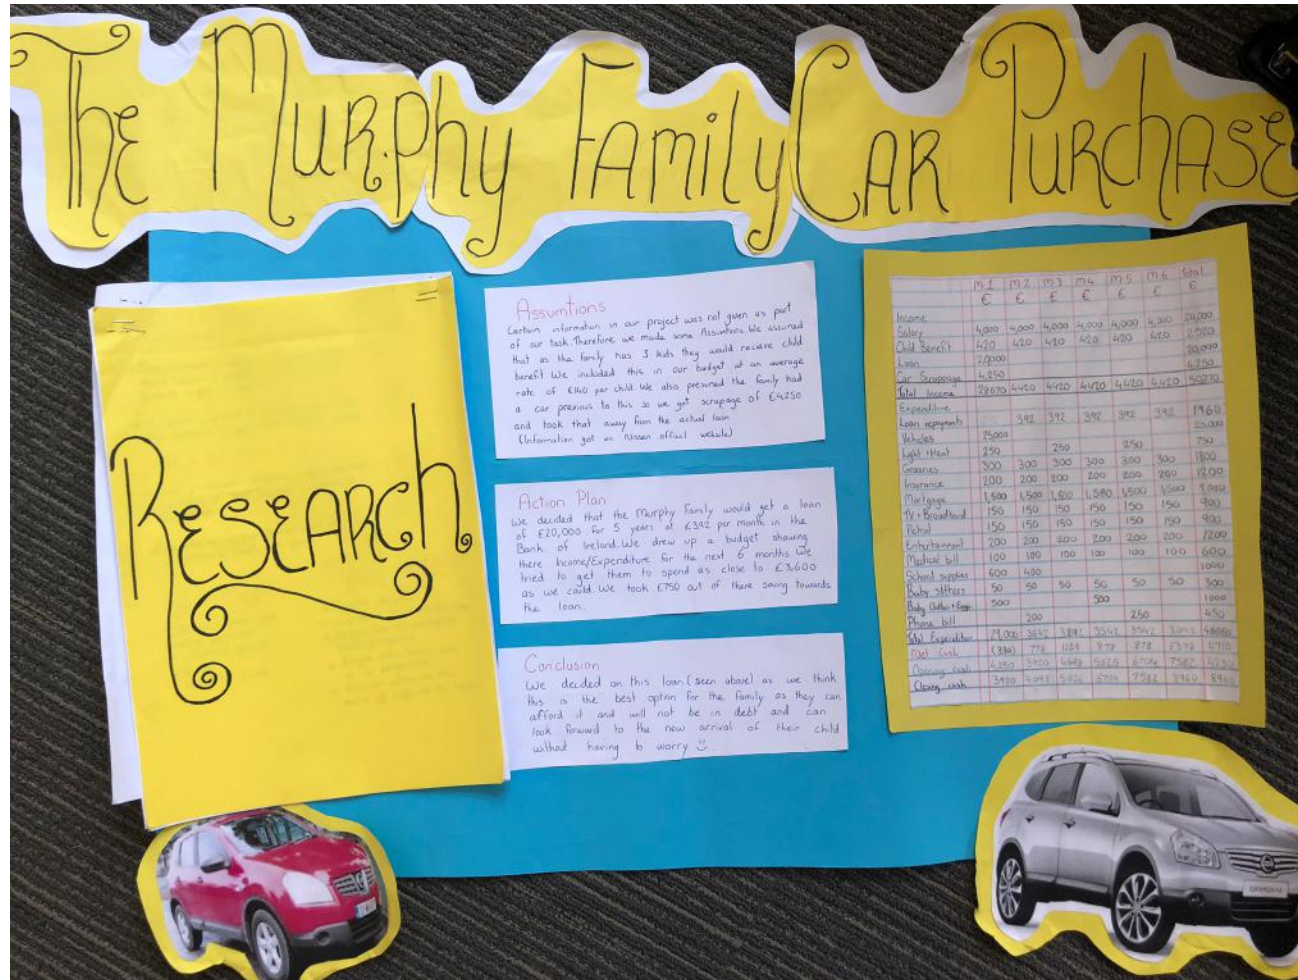 The Murphy Family Car Purchase
Research
Assumtions
Certain information in our project was not given as part
of our task. Therefore we made some Assumtions. We assumed
that as the family has 3 kids they would receive child
benefit. We included this in our budget at an average
rate of €140 per child. We also presumed the family had
a car previous to this so we got scrapage of €4250
and took that away from the actual loan.
(Information got on Nissan offical website)
Action Plan
We decided that the Murphy Family would get a loan
of €20,000 for 5 years at €392 per month in the
Bank of Ireland. We drew up a budget showing
there Income/Expenditure for the next 6 months. We
tried to get them to spend as close to €3,600
as we could. We took €750 out of there saving towards
the loan.
Conclusion
We decided on this loan (seen above) as we think
this is the best option for the family as they can
afford it and will not be in debt and can
look forward to the new arrival of their child
without having to worry
M1 M2 M3 M4 M5 M6 Total
€ € € € € € €
Income
Salary 4,000 4,000 4,000 4,000 4,000 4,000 24,000
Child Benefit 420 420 420 420 420 420 2,520
Loan 20000 20,000
Car Scrappage 4,250 4,250
Total Income 28670 4420 4420 4420 4420 4420 50770
Expenditure
Loan repayments 392 392 392 392 392 1960
Vehicles 25,000 25,000
Light + Heat 250 250 250 750
Groceries 300 300 300 300 300 300 1800
Insurance 200 200 200 200 200 200 1200
Mortgage 1,500 1,500 1,500 1,500 1,500 1,500 9,000
TV + Broadband 150 150 150 150 150 150 900
Petrol 150 150 150 150 150 150 900
Entertainment 200 200 200 200 200 200 1200
Medical bill 100 100 100 100 100 100 600
School supplies 600 400 1000
Baby sitters 50 50 50 50 50 50 300
Baby Clothes + 500 500 1000
Phone bill 200 250 450
Total Expenditure 29,000 3642 3542 3542
Net Cash (330) 778 878 878
Opening cash 4,250 3920 4698 6704 7582
Closing cash 3920 4698 6704 7582 8960